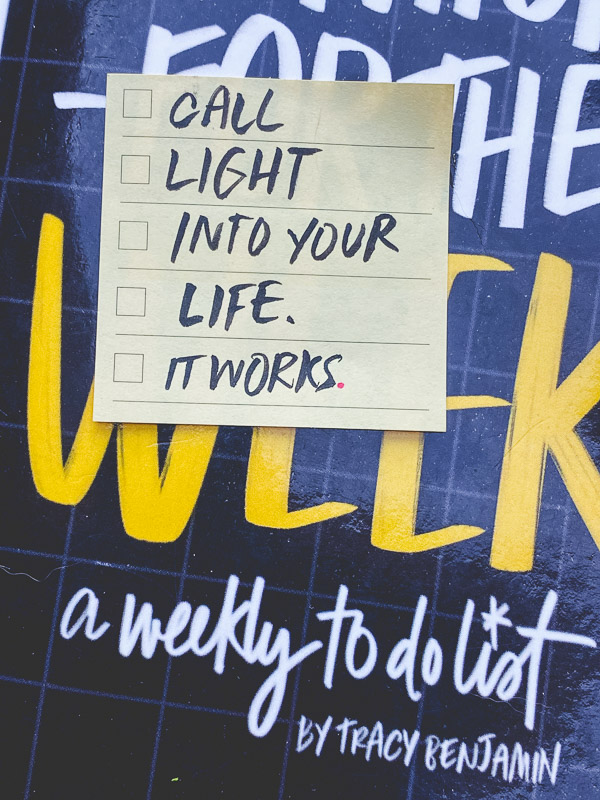 FOR THE
CALL
LIGHT
INTO YOUR
LIFE.
IT WORKS.
WEEK
a weekly to do list
BY TRACY BENJAMIN